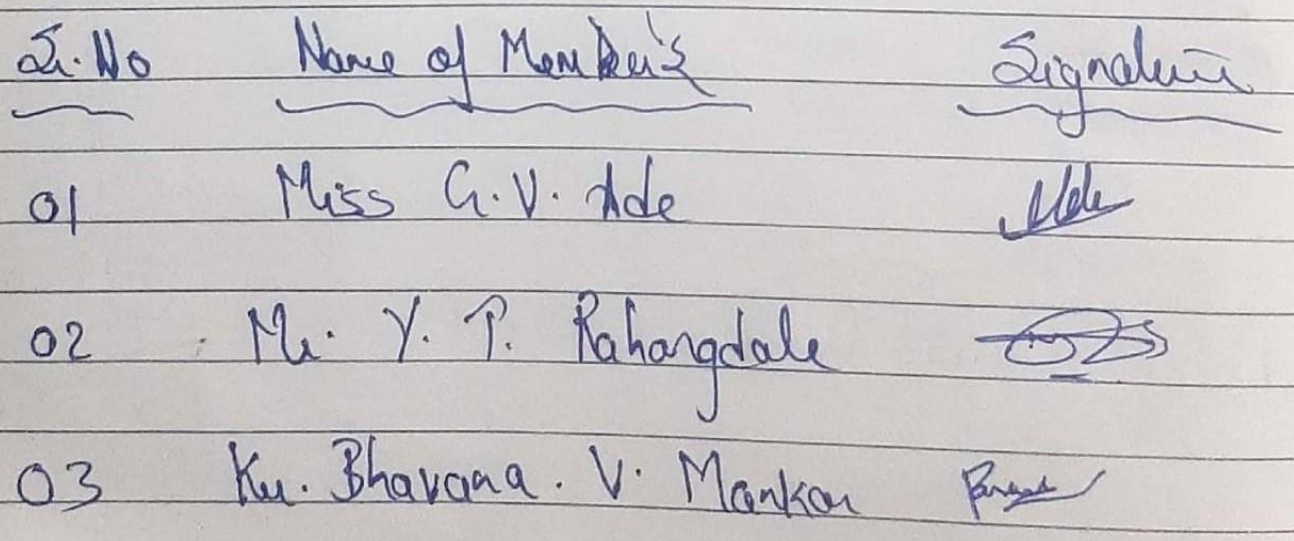 Sr. No Name of Member's Signature
01 Miss G. V. Ade
02 Mr. Y. P. Rahangdale
03 Ku. Bhavana. V. Mankar